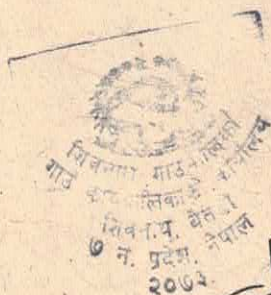 शिवनाथ गाउँपालिका
गाउँ कार्यपालिकाको कार्यालय
शिवनाथ, बैतडी
७ नं. प्रदेश, नेपाल
२०७३